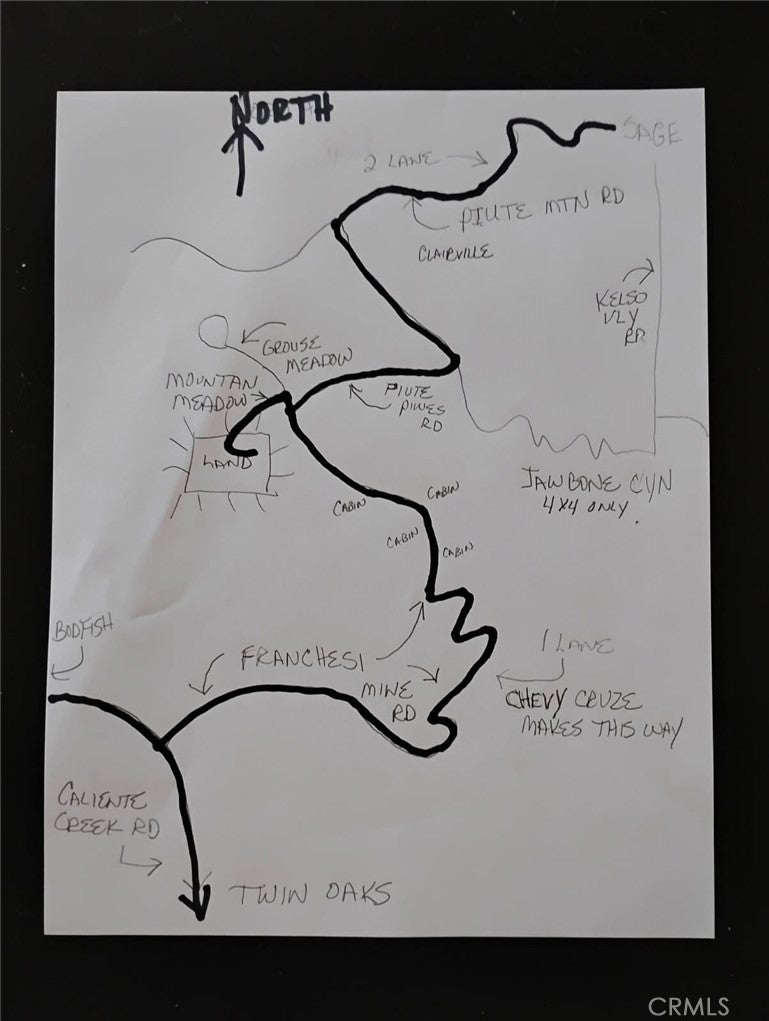 NORTH
SAGE
2 LANE
PIUTE MTN RD
CLAIRVILLE
KELSO
VLY
RD
GROUSE
MEADOW
MOUNTAN
MEADOW
PIUTE
PINES
RD
LAND
JAWBONE CYN
4X4 ONLY.
CABIN
CABIN
CABIN
CABIN
BODFISH
FRANCHESI
1 LANE
MINE
RD
CHEVY CRUZE
MAKES THIS WAY
CALIENTE
CREEK RD
TWIN OAKS
CRMLS